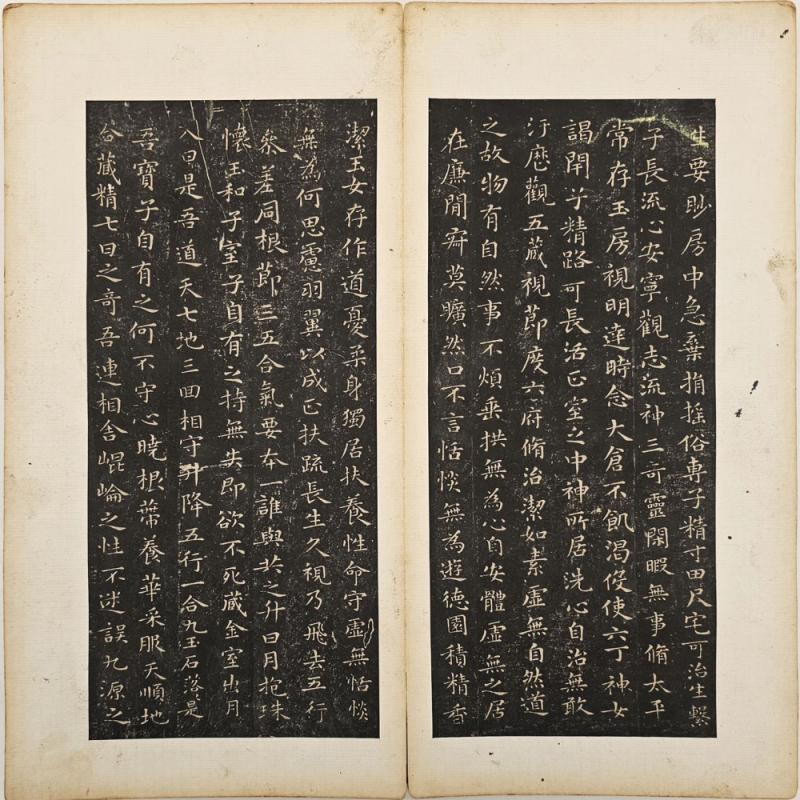 生要眇房中急棄捐搖俗專子精寸田尺宅可治生繫
子長流心安寧觀志流神三奇靈閑暇無事脩太平
常存玉房視明達時念大倉不飢渴役使六丁神女
謁閉子精路可長活正室之中神所居洗心自治無敢
汙歷觀五藏視節度六府脩治潔如素虛無自然道
之故物有自然事不煩垂拱無為心自安體虛無之居
在廉閒寂莫曠然口不言恬惔無為遊德園積精香
潔玉女存作道憂柔身獨居扶養性命守虛無恬惔
無為何思慮羽翼以成正扶疏長生久視乃飛去五行
參差同根節三五合氣要本一誰與共之升日月抱珠
懷玉和子室子自有之持無失即欲不死藏金室出月
入日是吾道天七地三回相守升降五行一合九玉石落是
吾寶子自有之何不守心曉根蔕養華采服天順地
合藏精七日之奇吾連相舍崐崘之性不迷誤九源之